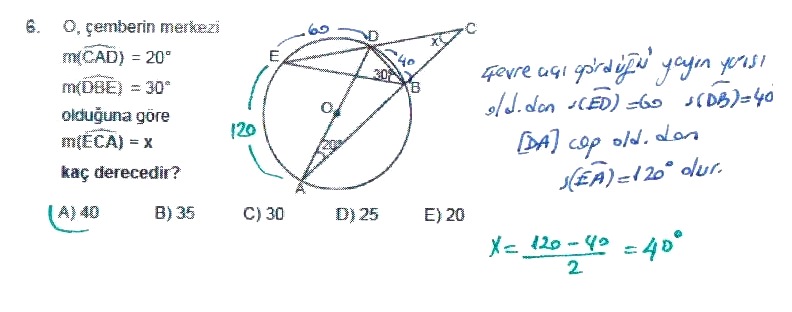 6. O, çemberin merkezi
m(CAD) = 20°
m(DBE) = 30°
olduğuna göre
m(ECA) = x
kaç derecedir?
A) 40 B) 35 C) 30 D) 25 E) 20
60
D
C
x
E
40
30°
B
O
120
20°
A
Çevre açı gördüğü yayın yarısı
old.dan s(ED) = 60 s(DB) = 40
[DA] çap old. dan
s(EA) = 120° olur.
x = 120 - 40 / 2 = 40°